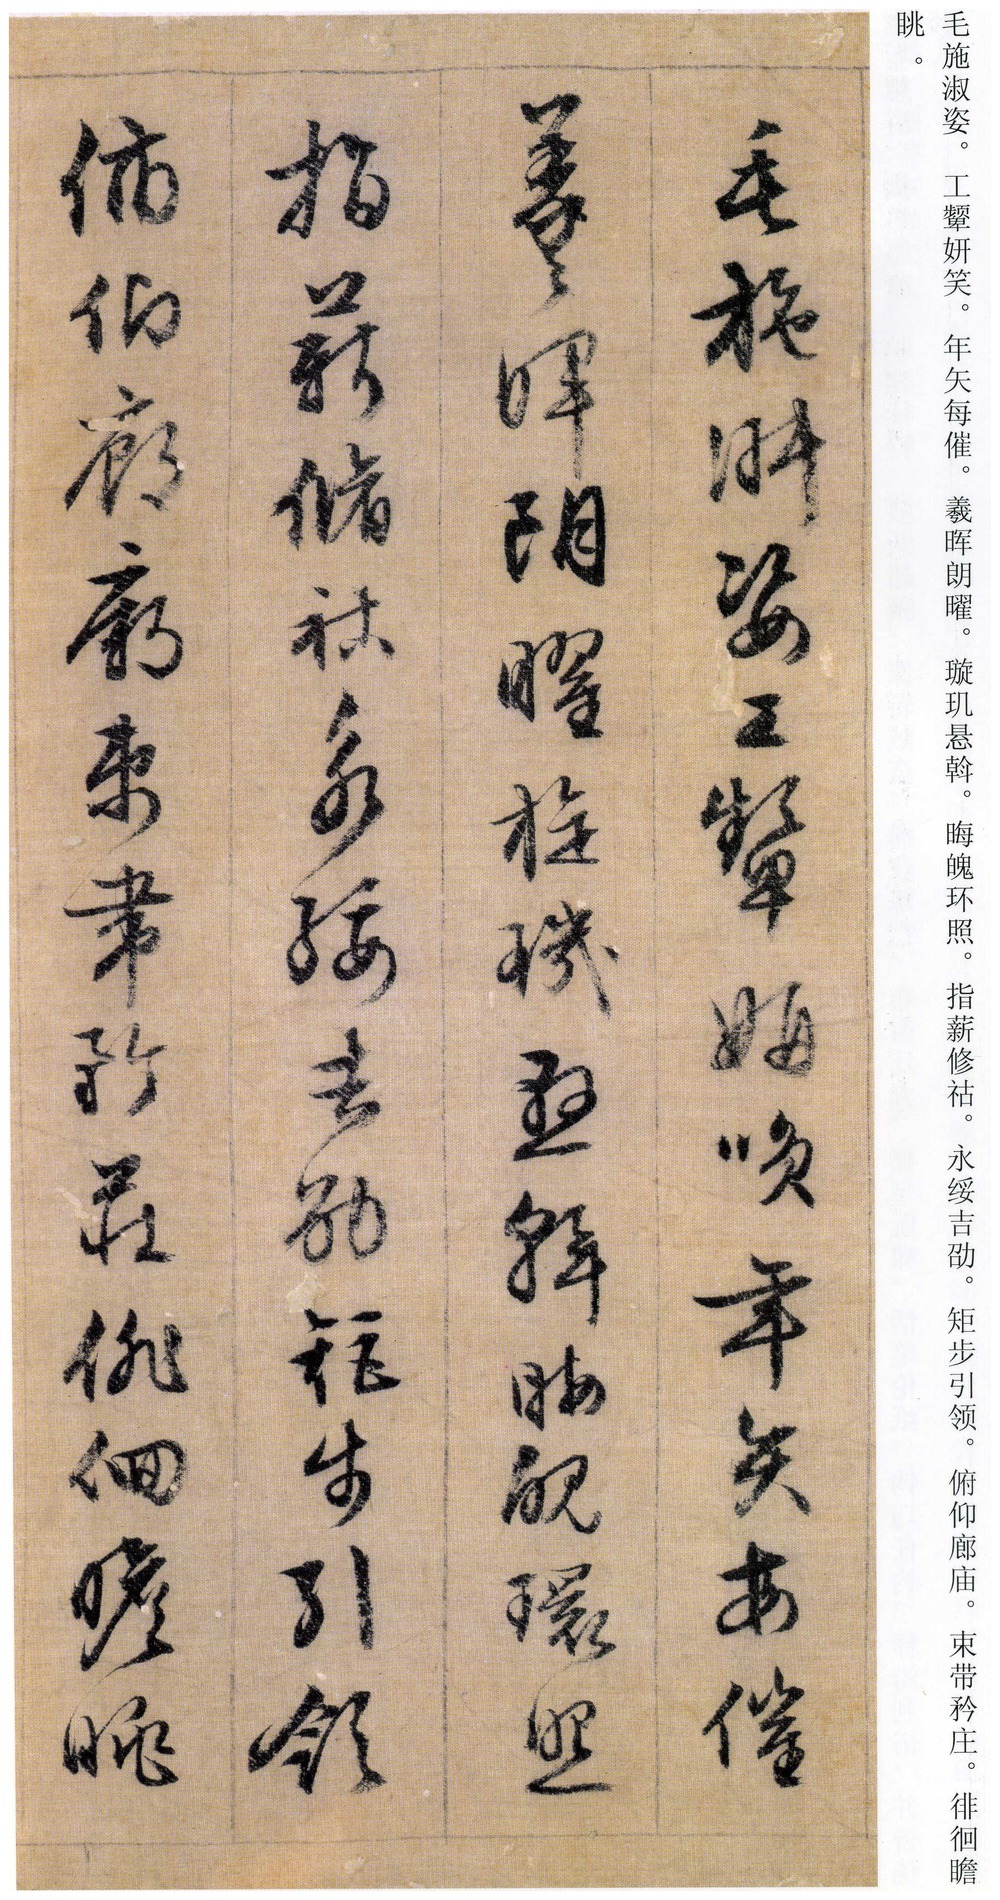 毛施淑姿。工颦妍笑。年矢每催。羲晖朗曜。璇玑悬斡。晦魄环照。指薪修祜。永绥吉劭。矩步引领。俯仰廊庙。束带矜庄。徘徊瞻
眺。
毛施淑姿工颦妍笑年矢每催
羲晖朗曜旋璣懸斡晦魄環照
指薪修祜永綏吉劭矩步引領
俯仰廊廟束帶矜莊俳佪瞻眺